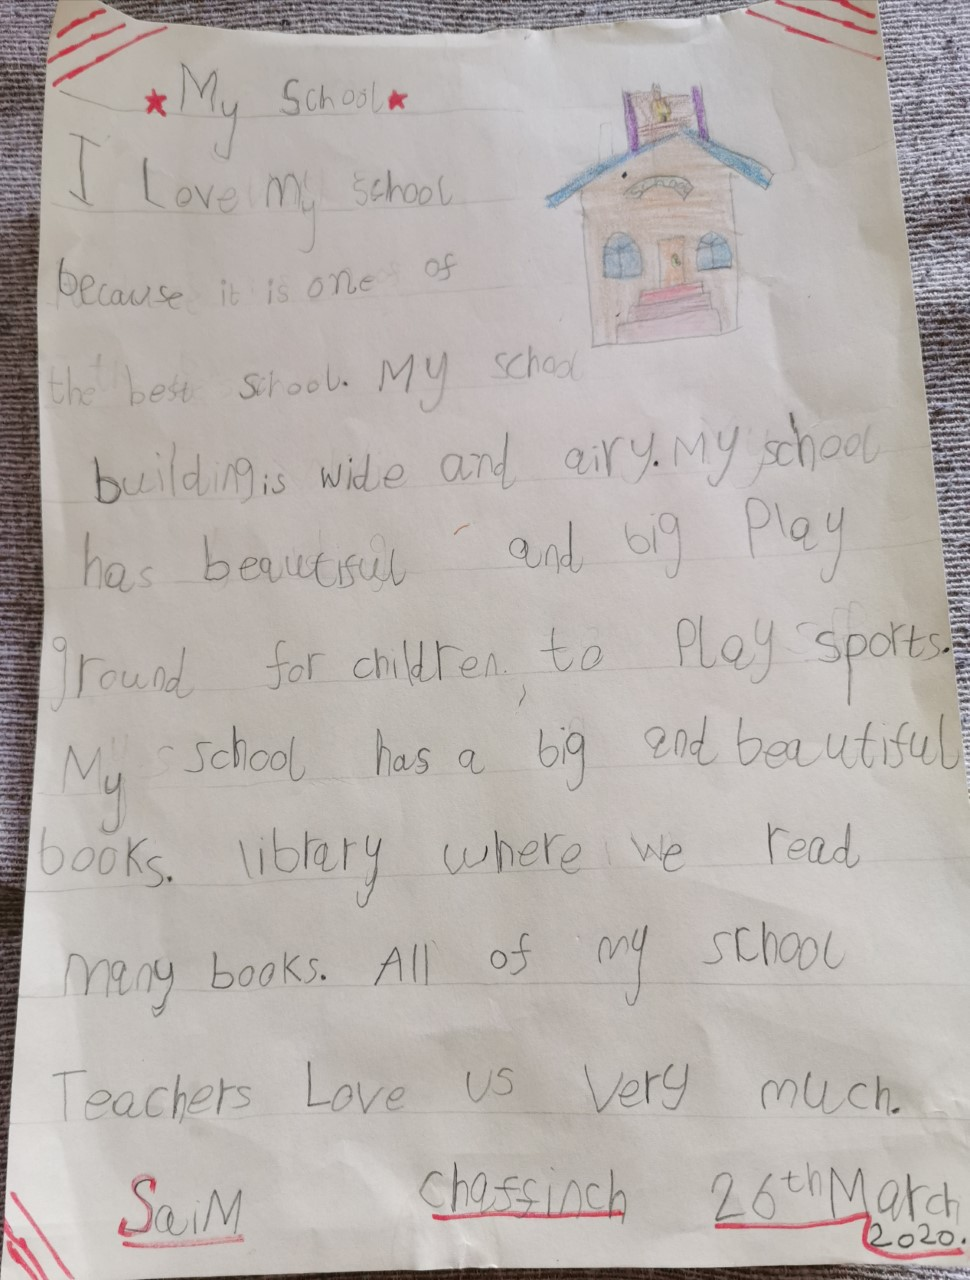 My School
I Love my school
because it is one of
the best school. My school
building is wide and airy. My school
has beautiful and big Play
ground for children to Play sports.
My school has a big and beautiful
books. library where we read
many books. All of my school
Teachers Love us very much.
SaiM chaffinch 26th March
2020.